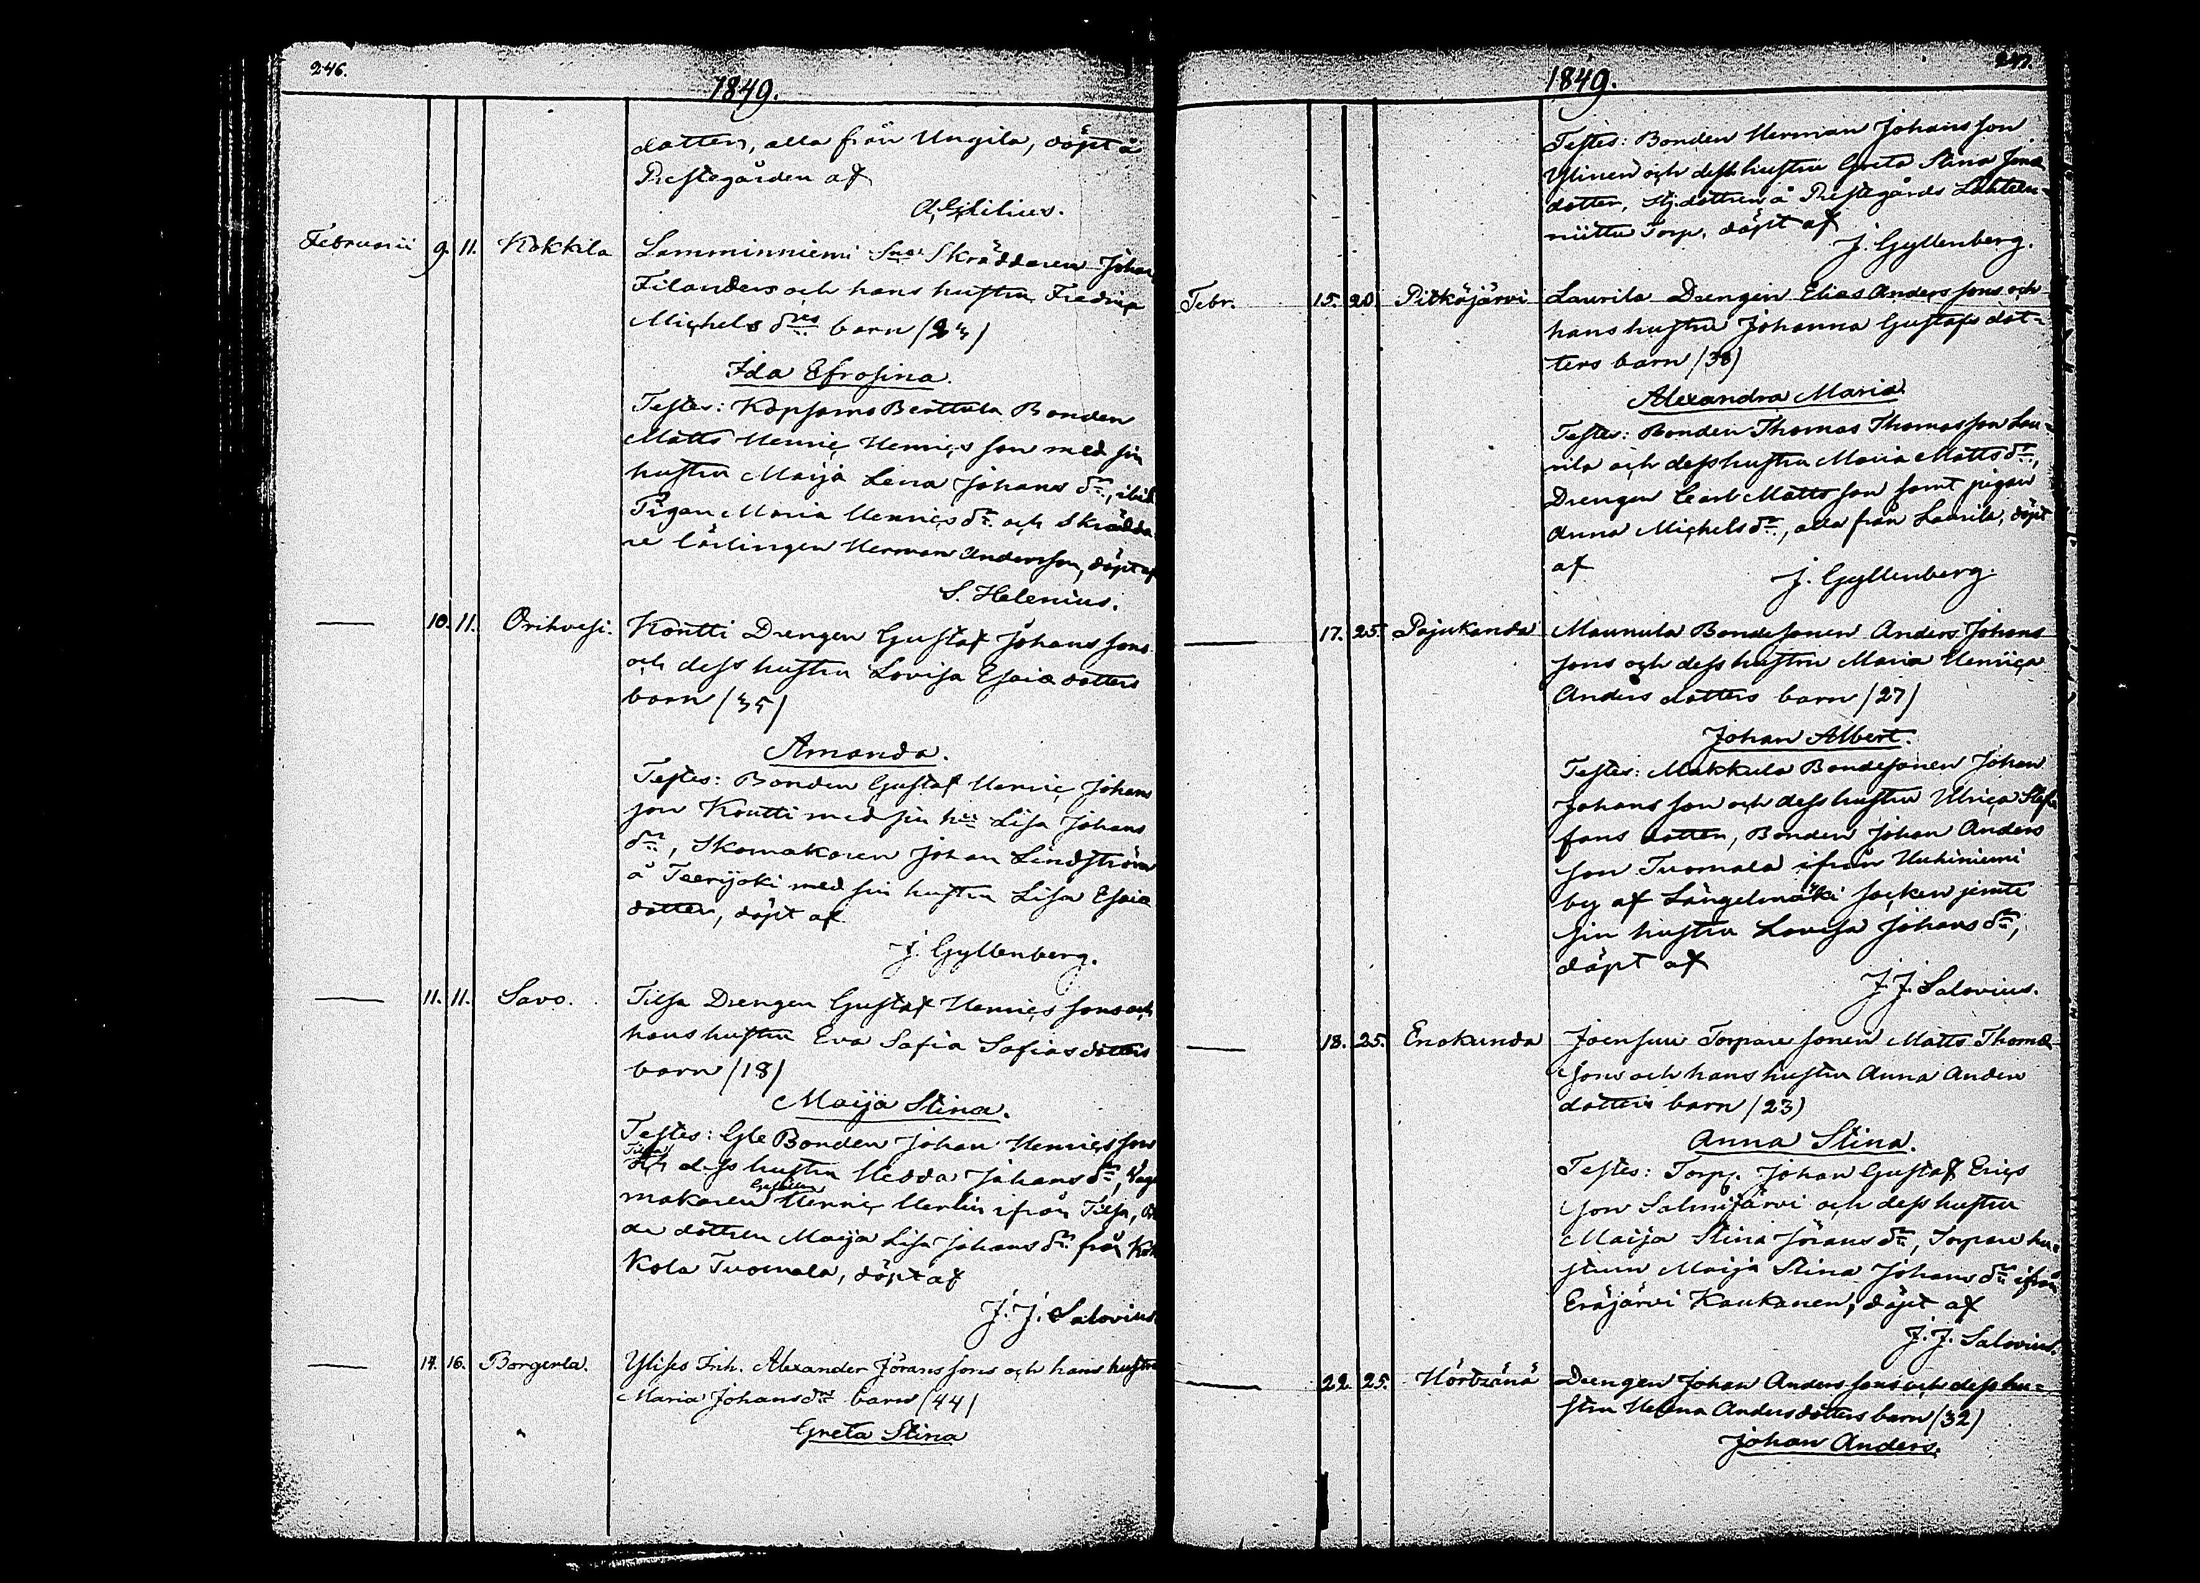 246.
1849.
dotter, alla från Ungila, döpt å
Prestegården af
A. G. Lilius.
Februarii 9. 11. Kokkila Lamminniemi Skräddaren Johan
Filanders och hans hustru Fredrica
Michels drs barn (24)
Ida Efrosina.
Testes: Kopsamo Berttula Bonden
Matts Henric Henrics son med sin
hustru Maija Lena Johans dr,
Pigan Maria Henrics dr och Skrädda
re lärlingen Herman Andersson, döpt af
S. Helenius.
10. 11. Orihvesi. Kontti Drengen Gustaf Johans sons
och dess hustru Lovisa Esaiæ dotters
barn (35)
Amanda.
Testes: Bonden Gustaf Henric Johans
son Kontti med sin hu Lisa Johans
dr, Skomakaren Johan Lindström
å Teerijoki med sin hustru Lisa Esaiæ
dotter, döpt af
J. Gyllenberg.
11. 11. Savo. Tilsa Drengen Gustaf Henrics sons och
hans hustru Eva Safia Safias dotters
barn (18)
Maija Stina.
Testes: Gle Bonden Johan Henrics son
Tilsa och dess hustru Hedda Johans dr,
makaren Gesällen Henric Merlin ifrån Tilsa,
dottren Maija Lisa Johans dr från
kola Tuomala, döpt af
J. J. Salovius.
14. 16. Borgerla. Ylises Inh. Alexander Jörans sons och hans hustru
Maria Johans drs barn (44)
Greta Stina
247.
1849.
Testes: Bonden Herman Johans son
Ylinen och dess hustru Greta Stina
dotter, dottren å Prestegårds Lahten-
niittu Torp, döpt af
J. Gyllenberg.
Febr. 15. 20. Pitkäjärvi Laurila Drengen Elias Anders sons och
hans hustru Johanna Gustafs dot-
ters barn (38)
Alexandra Maria
Testes: Bonden Thomas Thomasson Lau-
rila och dess hustru Maria Matts dr,
Drengen Carl Matts son samt pigan
Anna Michels dr, alla från Laurila, döpt
af
J. Gyllenberg.
17. 25. Pajukanda Maunula Bondesonen Anders Johans
sons och dess hustru Maria Henrica
Anders dotters barn (27)
Johan Albert.
Testes: Makkula Bondesonen Johan
Johans son och dess hustru Ulrica Stef
fans dotter, Bonden Johan Anders
son Tuomala ifrån Uuhiniemi
by af Längelmäki socken jemte
sin hustru Lovisa Johans dr,
döpt af
J. J. Salovius.
18. 25. Enokunda Joensuu Torpare sonen Matts Thomæ
sons och hans hustru Anna Anders
dotters barn (23)
Anna Stina.
Testes: Torp. Johan Gustaf Erics
son Salmijärvi och dess hustru
Maija Stina Jörans dr, Torpare hu-
strun Maija Stina Johans dr ifrån
Eräjärvi Kaukanen, döpt af
J. J. Salovius.
22. 25. Hörtsänä Drengen Johan Anders sons och dess hu-
stru Helena Anders dotters barn (32)
Johan Anders.